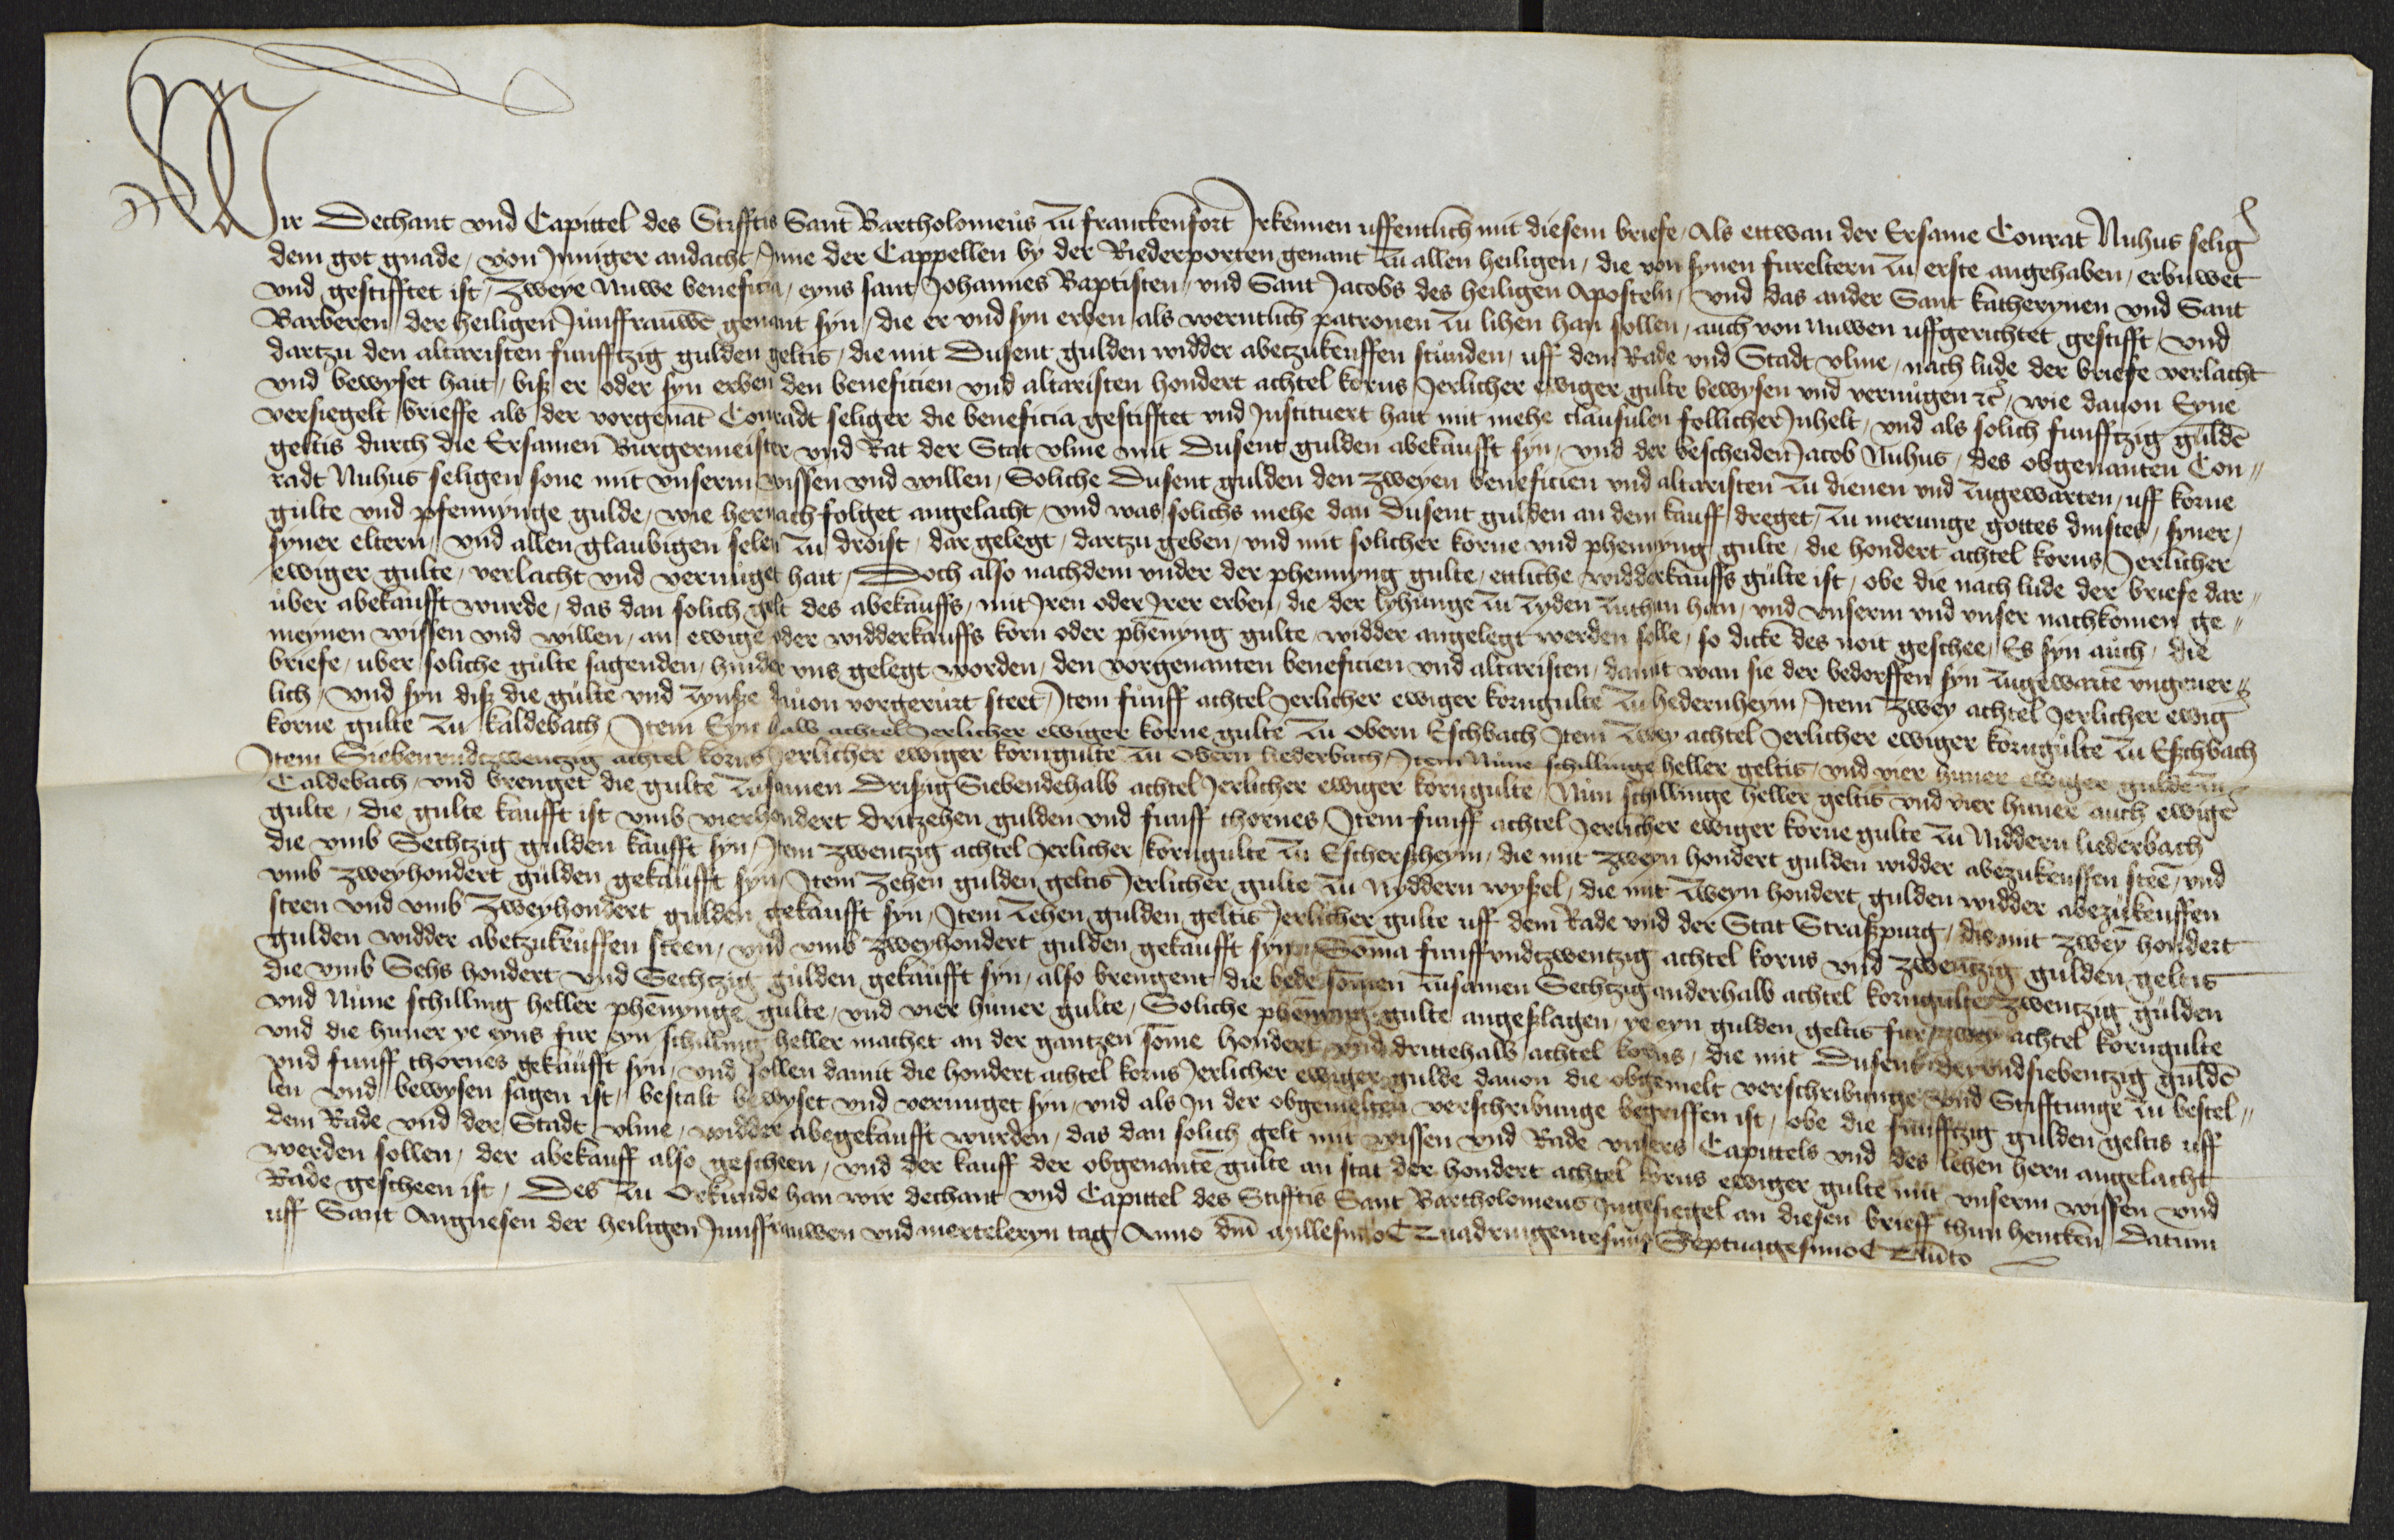 Wir Dechant vnd Capittel des Stifftis Sant Bartholomeus zu franckenfort Irkennen uffentlich mit diesem briefe / Als ettwan der Ersame Conrat Nuhus selig
dem got gnade / von Inniger andacht / Inne der Cappellen by der Riederporten genant zu allen heiligen / die von synen fureltern zu erste angehaben / erbuwet
vnd gestifftet ist / Zweye Nuwe beneficia / eyns sant Johannes Baptisten / vnd Sant Jacobs des heiligen Aposteln / vnd das ander Sant katherynen vnd Sant
Barberen der heiligen Junffrauwē genant syn / die er vnd syn erben als werntlich patronen zu lihen han sollen / auch von nuwen uffgerichtet gestifft / vnd
dartzu den altaristen funfftzig gulden geltis / die mit Dusent gulden widder abetzukeuffen stunden / uff dem Rade vnd Stadt vlme / nach lude der briefe verlacht
vnd bewyset hait / biß er oder syn erben den beneficien vnd altaristen hondert achtel korns Jerlicher ewiger gulte bewysen vnd vernugen ꝛc̄ / wie dauon Eyne
versiegelt brieffe als der vorgenāt Conradt seliger die beneficia gestifftet vnd Instituert hait mit mehe clausulen sollicher Inhelt / vnd als solich funfftzig guldē
geltis durch die Ersamen Burgermeister vnd Rat der Stat vlme mit Dusent gulden abekaufft syn / vnd der bescheiden Jacob Nuhus / des obgenanten Con〃
radt Nuhus seligen sone mit vnserm wissen vnd willen / Soliche Dusent gulden den zweyen beneficien vnd altaristen zu dienen vnd zugewarten / uff korne
gulte vnd pfennynge gulde / wie hernach folget angelacht / vnd was solichs mehe dan Dusent gulden an dem kauff dreget / zu merunge gottes dinstes / syner /
syner eltern / vnd allen glaubigen selen zu droist / dar gelegt / dartzu geben / vnd mit solicher korne vnd phennyng gulte / die hondert achtel korns Jerlicher
ewiger gulte / verlacht vnd vernuget hait / Doch also nachdem vnder der phennyng gulte / ettliche widderkauffs gulte ist / obe die nach lude der briefe dar〃
uber abekaufft wurde / das dan solich gelt des abekauffs / mit Iren oder Irer erben / die der lyhunge zu zyden zuthun han / vnd vnserm vnd vnser nachkomen ge〃
meynen wissen vnd willen / an ewige oder widderkauffs korn oder phēnyng gulte / widder angelegt werden solle / so dicke des noit geschee / Es syn auch / die
briefe / uber soliche gulte sagenden / hinder vns gelegt worden / den vorgenanten beneficien vnd altaristen / damit wan sie der bedorffen syn zugewartē vngeuer〃
lich / vnd syn diß die gulte vnd zynße dauon vorgerurt steet / Item funff achtel Jerlicher ewiger korngulte zu hedernheym / Item Zwey achtel Jerlicher ewig
korne gulte zu kaldebach / Item Eyn halb achtel Jerlicher ewiger korne gulte zu obern Eschbach Item zwey achtel Jerlicher ewiger korngulte zu Eschbach
Item Siebenvndtzwentzig achtel korns Jerlicher ewiger korngulte zu obern liederbach / Item Nune schillinge heller geltis / vnd vier huner ewiger gulde zu
Caldebach / vnd brenget die gulte zusamen Drißig Siebendehalb achtel Jerlicher ewiger korngulte / Nun schillinge heller geltis vnd vier huner auch ewigē
gulte / die gulte kaufft ist vmb vierhondert dritzehen gulden vnd funff thornes / Item funff achtel Jerlicher ewiger korne gulte zu Niddern liederbach
die vmb Sechtzig gulden kaufft syn / Item zwentzig achtel Jerlicher korngulte zu Eschersheym / die mit zweyn hondert gulden widder abezukeuffen steē / vnd
vmb zweyhondert gulden gekaufft syn / Item zehen gulden geltis Jerlicher gulte zu Nyddern wyßel / die mit zweyn hondert gulden widder abezukeuffen
steen vnd vmb zweyhondert gulden gekaufft syn / Item zehen gulden geltis Jerlicher gulte uff dem Rade vnd der Stat Straßpurg / die mit zweyn hondert
gulden widder abetzukeuffen steen / vnd vmb zweyhondert gulden gekaufft syn / Soma funffvndtzwentzig achtel korns vnd zwentzig gulden geltis
die vmb Sehs hondert vnd Sechtzig gulden gekaufft syn / also brengent die bede somen zusamen Sechtzig anderhalb achtel korngulte zwentzig gulden
vnd Nune schilling heller phēnynge gulte / vnd vier huner gulte / Soliche phēnyng gulte angeslagen / ye eyn gulden geltis fur zwey achtel korngulte
vnd die huner ye eyns fur eyn schilling heller machet an der gantzen some hondert vnd drittehalb achtel korns / die mit Dusent dryvndsiebentzig guldē
vnd funff thornes gekaufft syn / vnd sollen damit die hondert achtel korns Jerlicher ewiger gulde dauon die obgemelt verschribunge vnd Stifftunge zu bestel〃
len vnd bewysen sagen ist / bestalt bewyset vnd vernuget syn / vnd als In der obgemelten verschribunge begriffen ist / obe die funfftzig gulden geltis uff
dem Rade vnd der Stadt vlme / widder abegekaufft wurden / das dan solich gelt mit wissen vnd Rade vnsers Capittels vnd des lehen hern angelacht
werden sollen / der abekauff also gescheen / vnd der kauff der obgenantē gulte an stat der hondert achtel korns ewiger gulte mit vnserm wissen vnd
Rade gescheen ist / Des zu Orkunde han wir dechant vnd Capittel des Stifftis Sant Bartholomeus Ingesiegel an diesen brieff thun hencken Datum
uff Sant Angnesen der heiligen Junffrauwen vnd merteleryn tag Anno dm̄ Millesimo Quadringentesimo Septuagesimo Quīto